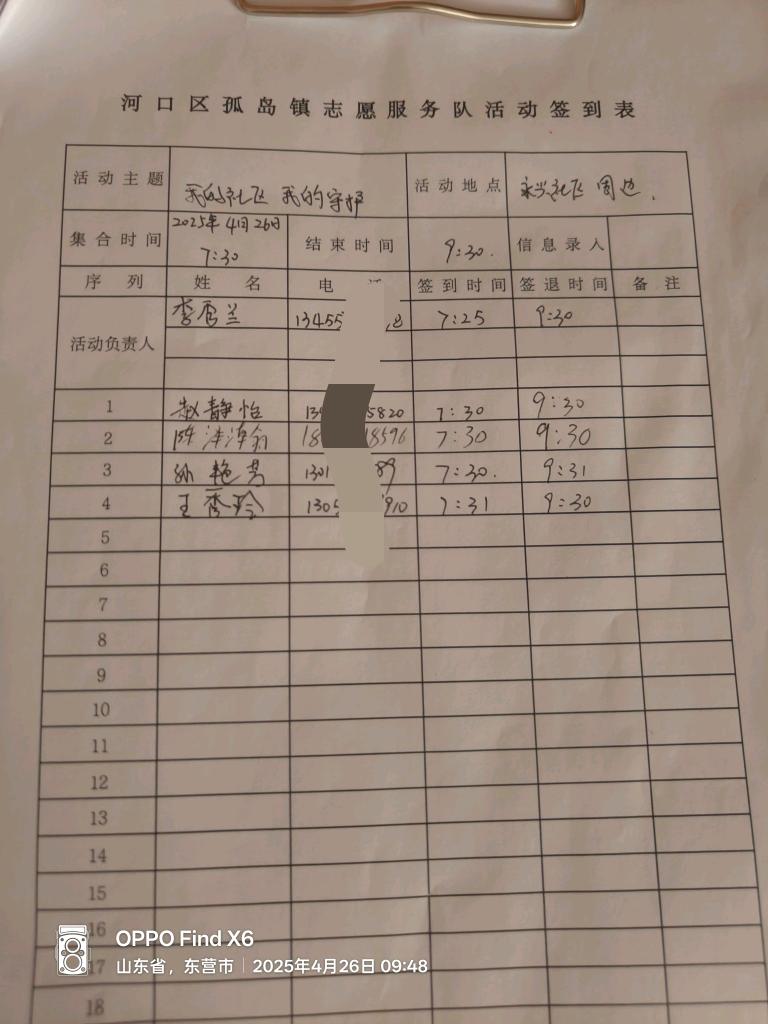 河口区孤岛镇志愿服务队活动签到表
活动主题 我的社区 我的守护 活动地点 永兴社区 周边.
集合时间 2025年4月26日 7:30 结束时间 9:30. 信息录入
序列 姓名 电 签到时间 签退时间 备注
活动负责人 李秀兰 13455 8 7:25 9:30
1 赵静怡 13 5820 7:30 9:30
2 陈 18 18596 7:30 9:30
3 孙艳芳 1301 89 7:30. 9:31
4 王秀玲 1305 910 7:31 9:30
5
6
7
8
9
10
11
12
13
14
15
16
17
18
OPPO Find X6
山东省，东营市 | 2025年4月26日 09:48